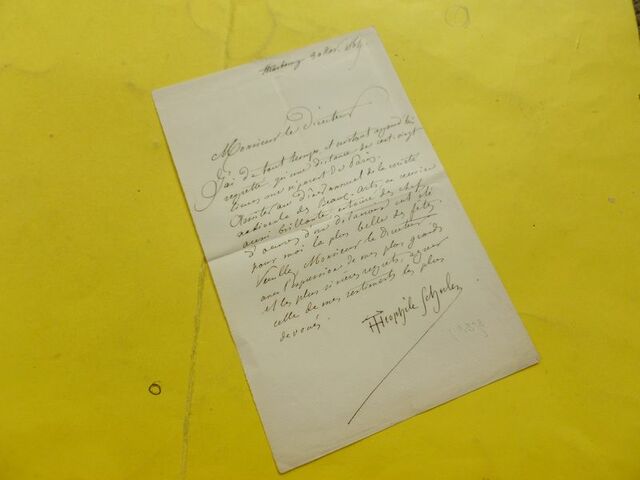 Strasbourg 30 Nov. 1869.
Monsieur le Directeur
J'ai de tout temps et surtout aujourd'hui
regretté qu'une distance de cent vingt
lieues me séparât de Paris.
Assister au diner annuel de la société
nationale des Beaux-Arts, en réunion
aussi brillante, entouré des chefs
d'œuvres d'une
pour moi la plus belle des fêtes.
Veuillez, Monsieur le Directeur
avec l'expression de mes plus grands
et les plus sincères regrets, agréer
celle de mes sentiments les plus
dévoués.
Théophile Schuler